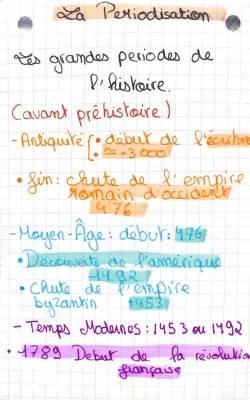 La Periodisation
Les grandes periodes de
l'histoire.
(avant préhistoire)
- Antiquité { • début de l'écriture
• ≈ -3 000
• fin: chute de l'empire
romain d'occident
476
- Moyen-Âge: début: 476
• Découverte de l'amérique
1492
• Chute de l'empire
byzantin 1453
- Temps Modernes: 1453 ou 1492
• 1789 Debut de la révolution
française